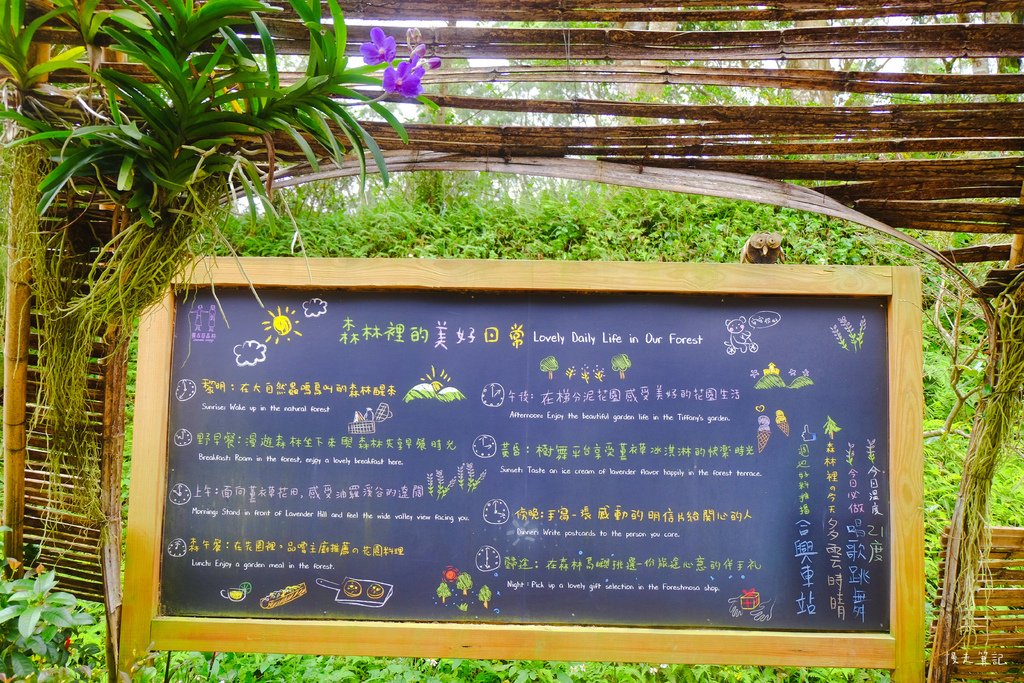 森林裡的美好日常 Lovely Daily Life in Our Forest
黎明：在大自然蟲鳴鳥叫的森林醒來
Sunrise: Wake up in the natural forest
野早餐：漫遊森林坐下來與森林共享早餐時光
Breakfast: Roam in the forest, enjoy a lovely breakfast here.
上午：面向薰衣草花田，感受油羅溪谷的遼闊
Morning: Stand in front of Lavender Hill and feel the wide valley view facing you.
森午餐：在花園裡，品嚐主廚推薦の花園料理
Lunch: Enjoy a garden meal in the forest.
午後：在梯芬泥花園感受美好的花園生活
Afternoon: Enjoy the beautiful garden life in the Tiffany's garden.
黃昏：樹舞平台享受薰衣草冰淇淋的快樂時光
Sunset: Taste an ice cream of lavender flavor happily in the forest terrace.
傍晚：手寫一張感動的明信片給關心的人
Dinner: Write postcards to the person you care.
歸途：在森林島嶼挑選一份旅途心意的伴手禮
Night: Pick up a lovely gift selection in the Forestmosa shop.
今日溫度 21度
今日必做 唱歌跳舞
森林裡の今天 多雲時晴
週邊好野推播 合興車站
慢走筆記